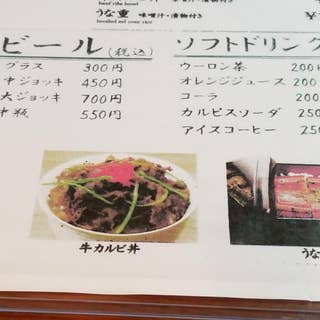 beef ribs bowl
うな重 味噌汁・漬物付き
broiled eel over rice
ビール(税込)
グラス 300円
中ジョッキ 450円
大ジョッキ 700円
中瓶 550円
ソフトドリンク
ウーロン茶 200
オレンジジュース 200
コーラ 200
カルピスソーダ 250
アイスコーヒー 250
牛カルビ丼
うな